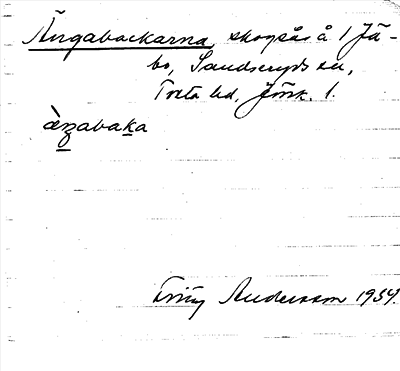 Ängabackarna, skogsås å 1 Jä-
bo, Sandseryds sn,
Tveta hd, Jönk. l.
àŋabaka
Fritz Andersson 1934.